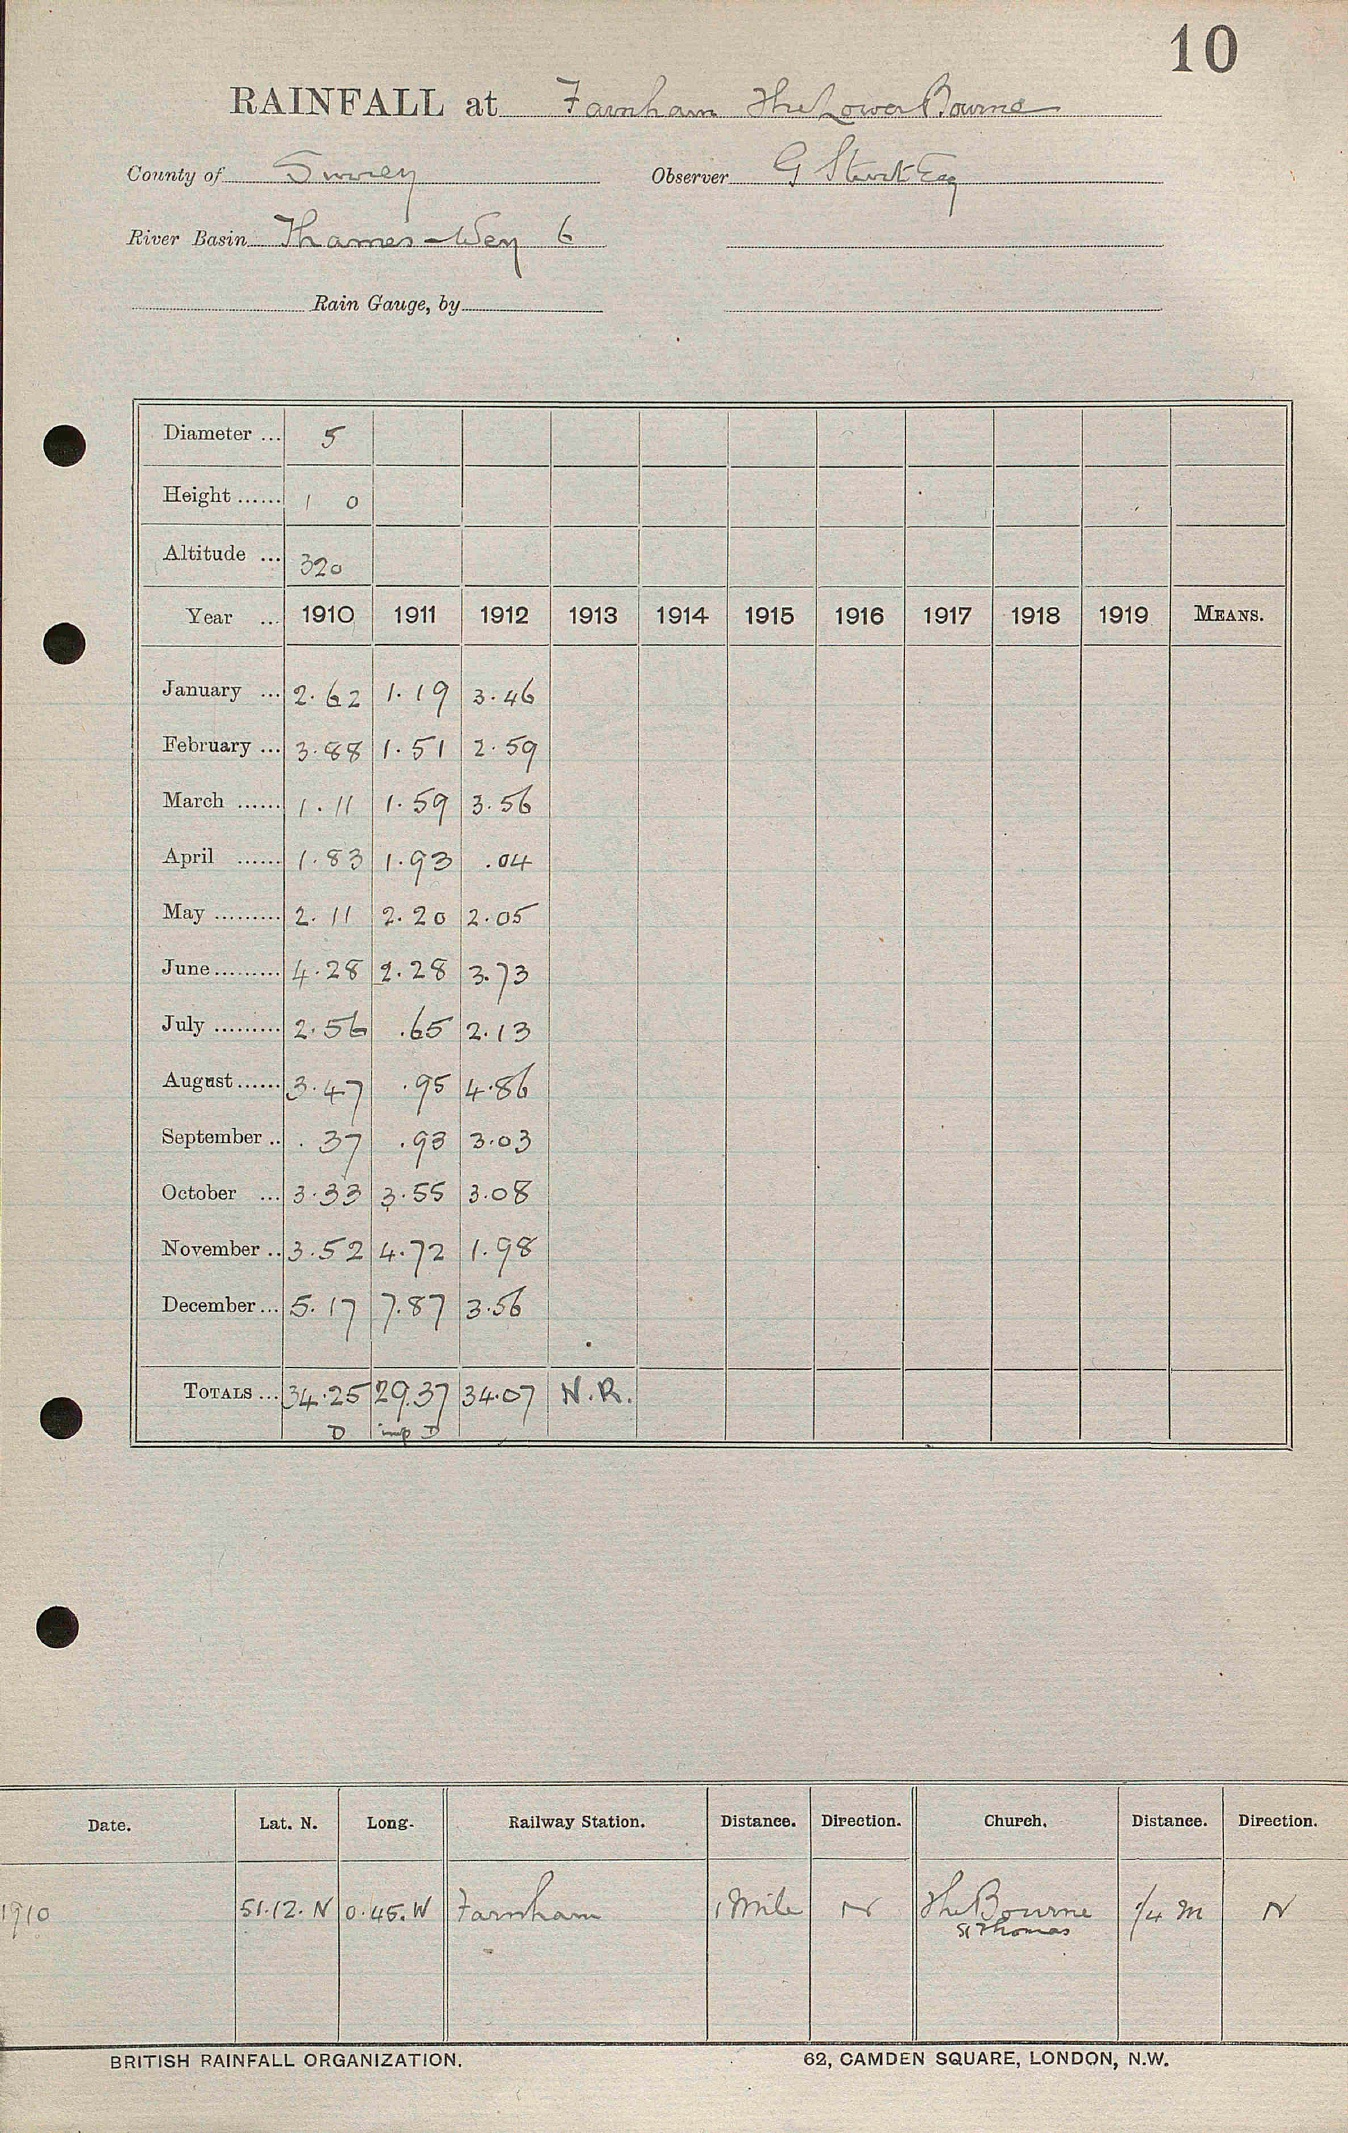 10
RAINFALL at Farnham The Lower Bourne
County of Surrey Observer G Sturt Esq
River Basin Thames - Wey 6
Rain Gauge, by
Diameter ... 5
Height ...... 1 0
Altitude ... 320
Year ... 1910 1911 1912 1913 1914 1915 1916 1917 1918 1919 MEANS.
January ... 2.62 1.19 3.46
February ... 3.88 1.51 2.59
March ...... 1.11 1.59 3.56
April ...... 1.83 1.93 .04
May ......... 2.11 2.20 2.05
June ......... 4.28 2.28 3.73
July ......... 2.56 .65 2.13
August ...... 3.47 .95 4.86
September .. .37 .93 3.03
October ... 3.33 3.55 3.08
November .. 3.52 4.72 1.98
December ... 5.17 7.87 3.56
TOTALS ... 34.25 29.37 34.07 N.R.
D imp D
Date. Lat. N. Long. Railway Station. Distance. Direction. Church. Distance. Direction.
1910 51.12.N 0.45.W Farnham 1 Mile N The Bourne 1/4 m N
St Thomas
BRITISH RAINFALL ORGANIZATION. 62, CAMDEN SQUARE, LONDON, N.W.